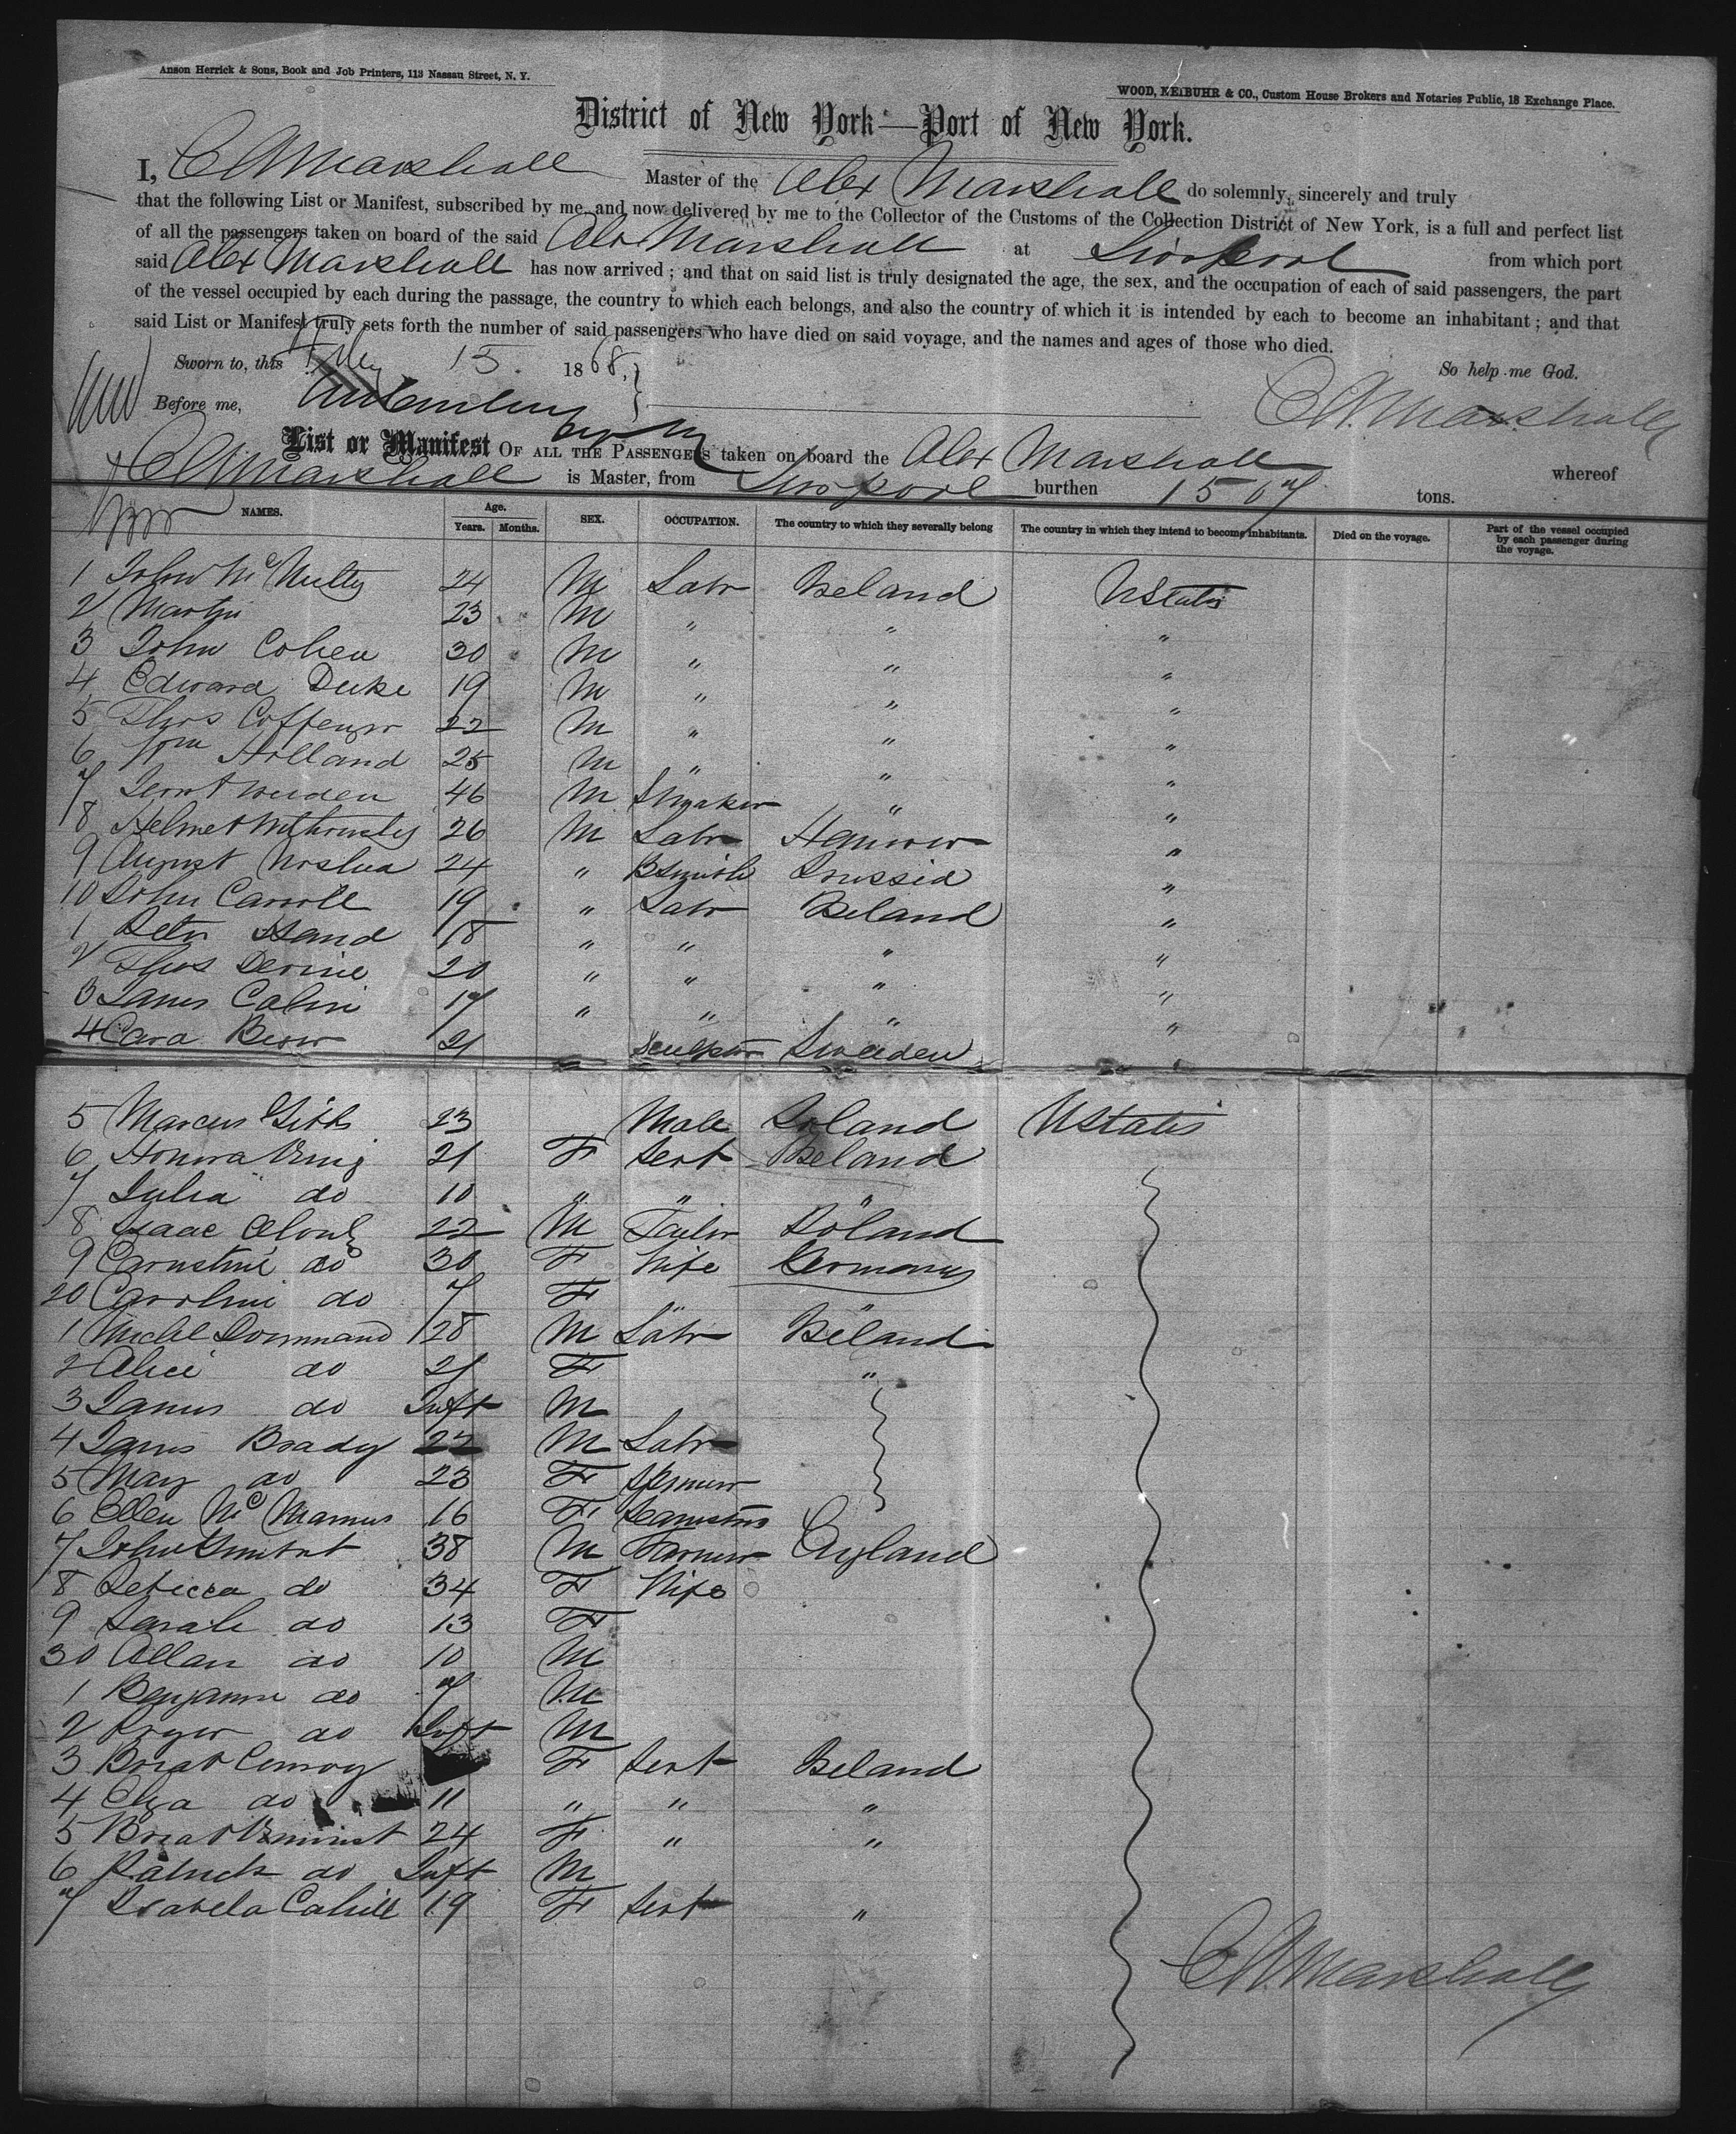 Anson Herrick & Sons, Book and Job Printers, 113 Nassau Street, N. Y.
WOOD, KEIBUHR & CO., Custom House Brokers and Notaries Public, 18 Exchange Place.
District of New York—Port of New York.
I, C A Marshall Master of the Alex Marshall do solemnly, sincerely and truly
that the following List or Manifest, subscribed by me and now delivered by me to the Collector of the Customs of the Collection District of New York, is a full and perfect list
of all the passengers taken on board of the said Alex Marshall at Livpool from which port
said Alex Marshall has now arrived; and that on said list is truly designated the age, the sex, and the occupation of each of said passengers, the part
of the vessel occupied by each during the passage, the country to which each belongs, and also the country of which it is intended by each to become an inhabitant; and that
said List or Manifest truly sets forth the number of said passengers who have died on said voyage, and the names and ages of those who died.
Sworn to, this 15 1868, So help me God.
Before me, C A Marshall
List or Manifest OF ALL THE PASSENGERS taken on board the Alex Marshall whereof
C A Marshall is Master, from Livpool burthen 1567 tons.
NAMES. Age. Years. Months. SEX. OCCUPATION. The country to which they severally belong The country in which they intend to become inhabitants. Died on the voyage. Part of the vessel occupied by each passenger during the voyage.
1 John McNulty 24 M Labr Ireland UStates
2 Martin 23 M " " "
3 John Cohen 30 M " " "
4 Edward Duke 19 M " " "
5 Thos 22 M " " "
6 Wm Holland 25 M " " "
7 46 M Shmaker " "
8 26 M Labr Hanover "
9 August 24 " BSmith Prussia "
10 John Carroll 19 " Labr Ireland "
1 Peter Hand 18 " " " "
2 Thos Devine 20 " " " "
3 James 17 " " " "
4 21 Sculptor Sweden
5 Marcus Gibbs 23 Male Poland UStates
6 Honora 21 F Sert Ireland
7 Julia do 10 " " "
8 Isaac 22 M Tailor Poland
9 do 30 F Wife Germany
20 Caroline do 7 F "
1 Michl 28 M Labr Ireland
2 Alice do 21 F "
3 James do Inft M
4 James Brady 22 M Labr
5 Mary do 23 F
6 Ellen McManus 16 F
7 John 38 M Farmer England
8 Rebecca do 34 F Wife
9 Sarah do 13 F
30 Allan do 10 M
1 Benjamin do 7 M
2 Roger do Inft M
3 Bridt Conroy F Sert Ireland
4 Eliza do 11 " " "
5 Bridt 24 F " "
6 Patrick do Inft M
7 Isabela Cahill 19 F Sert "
C A Marshall